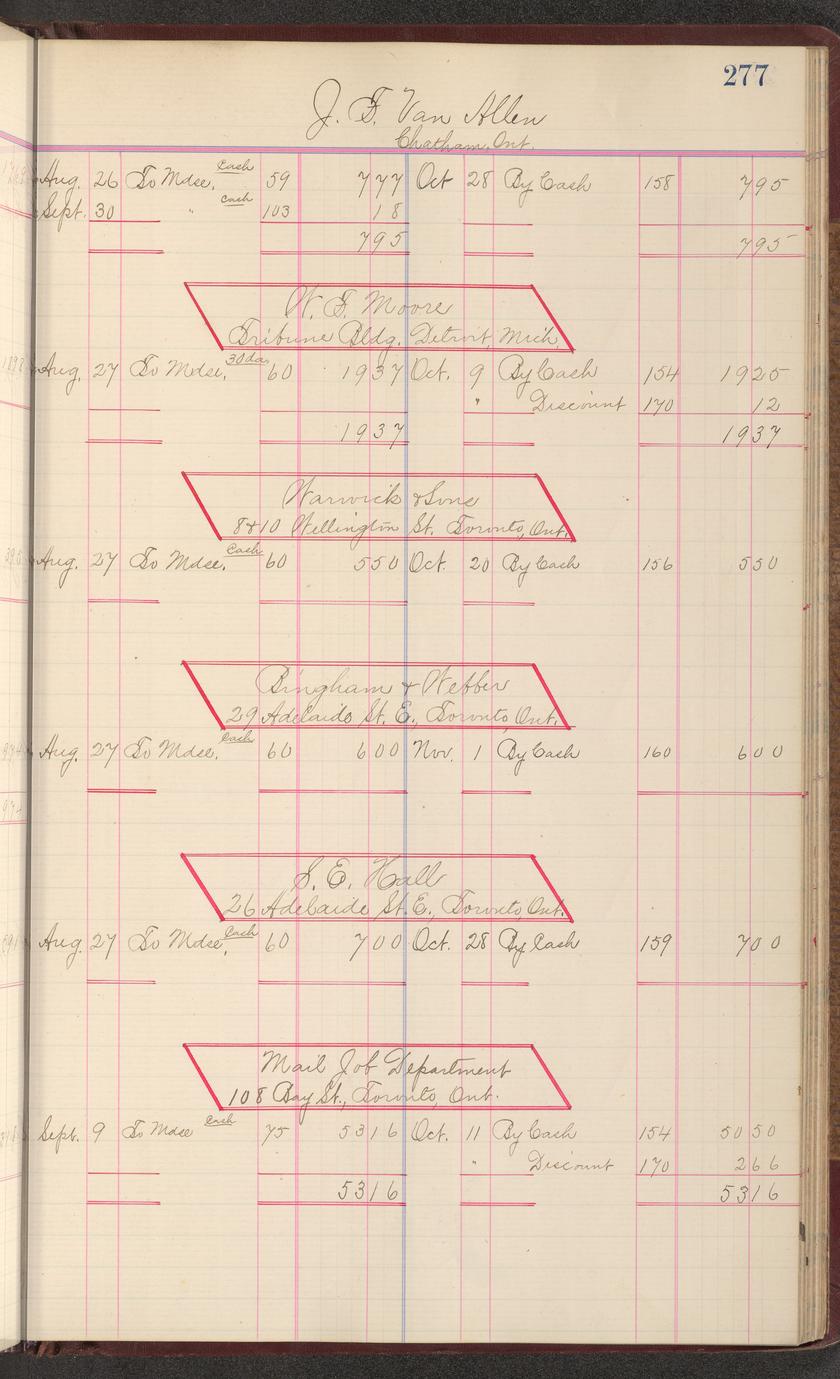 277
J. F. Van Allen
Chatham, Ont.
Aug. 26 To Mdse, Cash 59 777 Oct 28 By Cash 158 795
Sept. 30 " cash 103 18
795 795
W. F. Moore
Tribune Bldg. Detroit, Mich,
Aug. 27 To Mdse, 30 da. 60 1937 Oct. 9 By Cash 154 1925
" Discount 170 12
1937 1937
Warwick & Sons
8 & 10 Wellington St. Toronto, Ont.
Aug. 27 To Mdse, Cash 60 550 Oct. 20 By Cash 156 550
Bingham & Webber
29 Adelaide St. E., Toronto, Ont.
Aug. 27 To Mdse, Cash 60 600 Nov. 1 By Cash 160 600
S. E. Hall
26 Adelaide St. E., Toronto, Ont.
Aug. 27 To Mdse, Cash 60 700 Oct. 28 By Cash 159 700
Mail Job Department
108 Bay St., Toronto, Ont.
Sept. 9 To Mdse Cash 75 5316 Oct. 11 By Cash 154 5050
" Discount 170 266
5316 5316